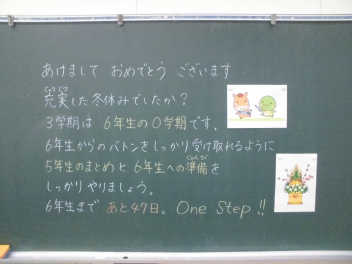 あけまして おめでとう ございます
充実した冬休みでしたか？
3学期は 6年生の0学期です。
6年生からのバトンをしっかり受け取れるように
5年生のまとめと 6年生への準備を
しっかりやりましょう。
6年生まで あと47日。 One Step !!